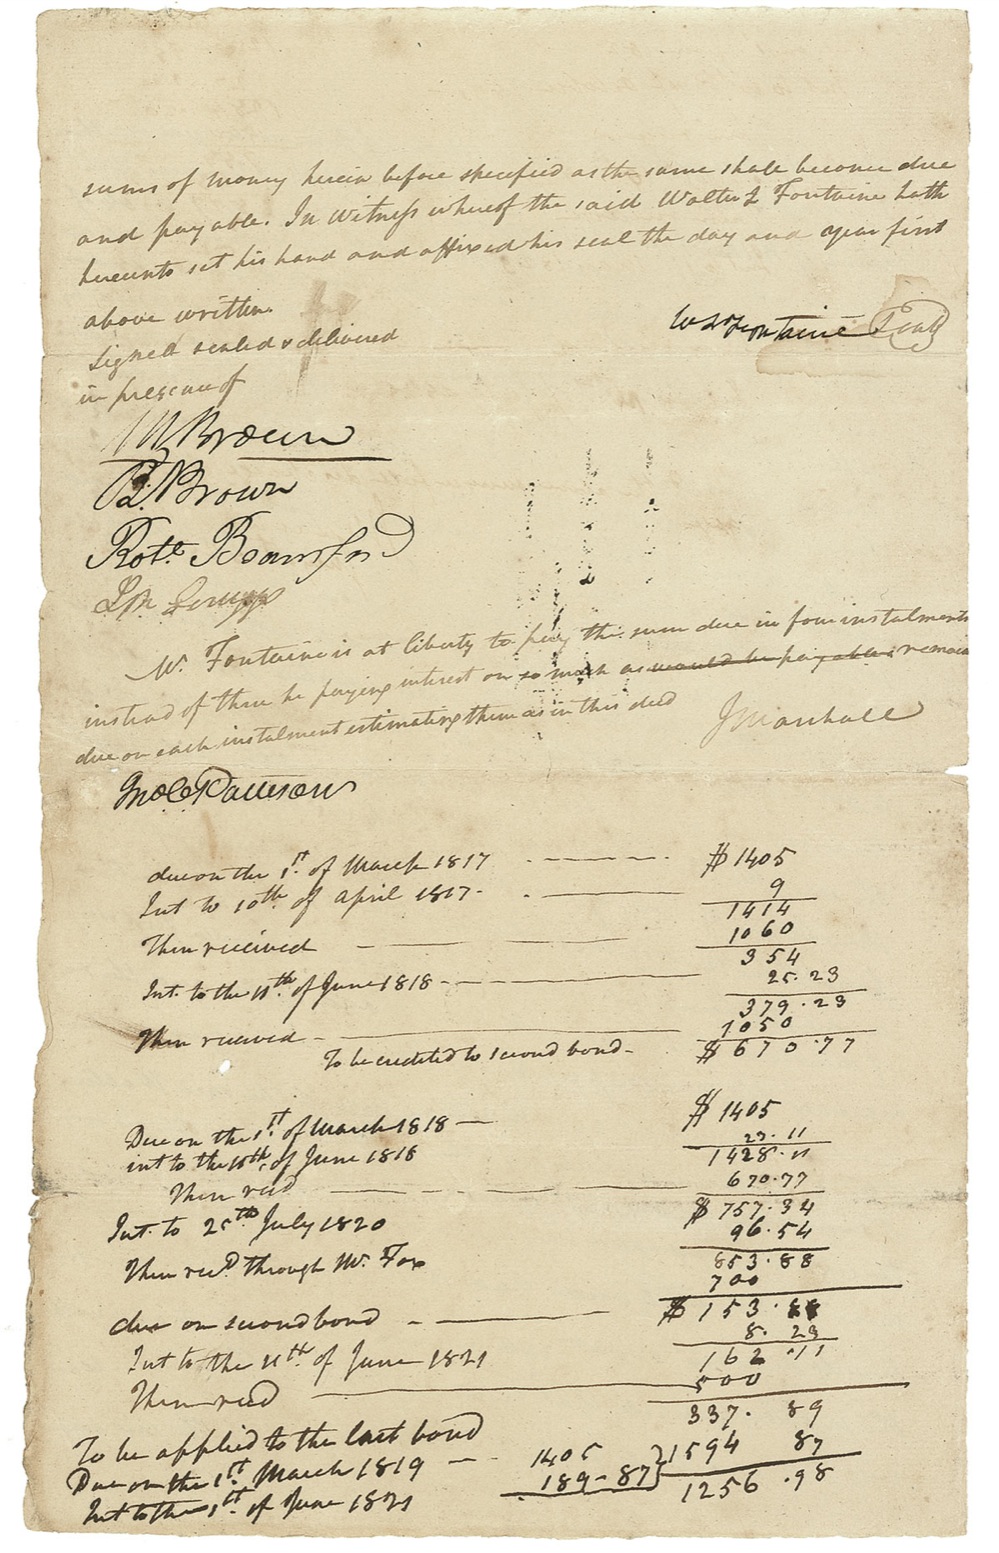 sums of money herein before specified as the same shall become due
and payable. In Witness whereof the said Walter L Fontaine hath
hereunto set his hand and affixed his seal the day and year first
above written.
W L Fontaine Seal
Signed sealed & delivered
in presence of
M Brown
B. Brown
Rot.
Mr. Fontaine is at liberty to pay the sum due in four instalments
instead of three he paying interest on so much as would be payable remain
due on each instalment estimating them as in this deed
J Marshall
Jno C Patteson
due on the 1st. of March 1817 $ 1405
Int to 10th. of April 1817. 9
1414
Then received 1060
354
Int. to the 11th of June 1818 - 25.23
379.23
Then received - 1050
To be credited to second bond - $ 670.77
Due on the 1st. of March 1818 - $ 1405
int to the 11th. of June 1818 23.11
1428.11
Then recd 670.77
$ 757.34
Int. to 25th July 1820 96.54
853.88
Then recd. through Mr. Fox 700
due on second bond - $ 153.88
Int to the 11th. of June 1821 8.23
162.11
Then recd 500
337.89
To be applied to the last bond
Due on the 1st. March 1819 - 1405 } 1594 87
Int to the 1st. of June 1821 189-87 1256.98